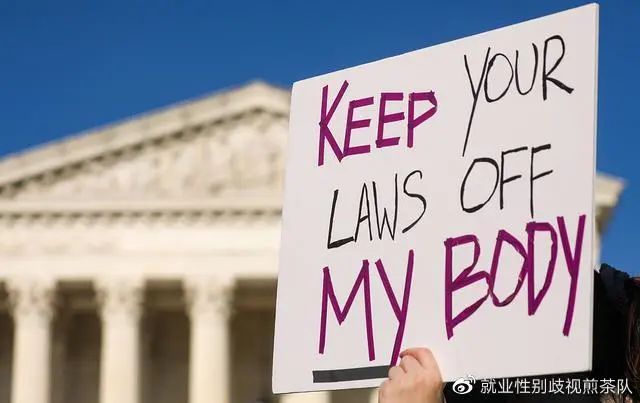 KEEP YOUR
LAWS OFF
MY BODY
就业性别歧视煎茶队